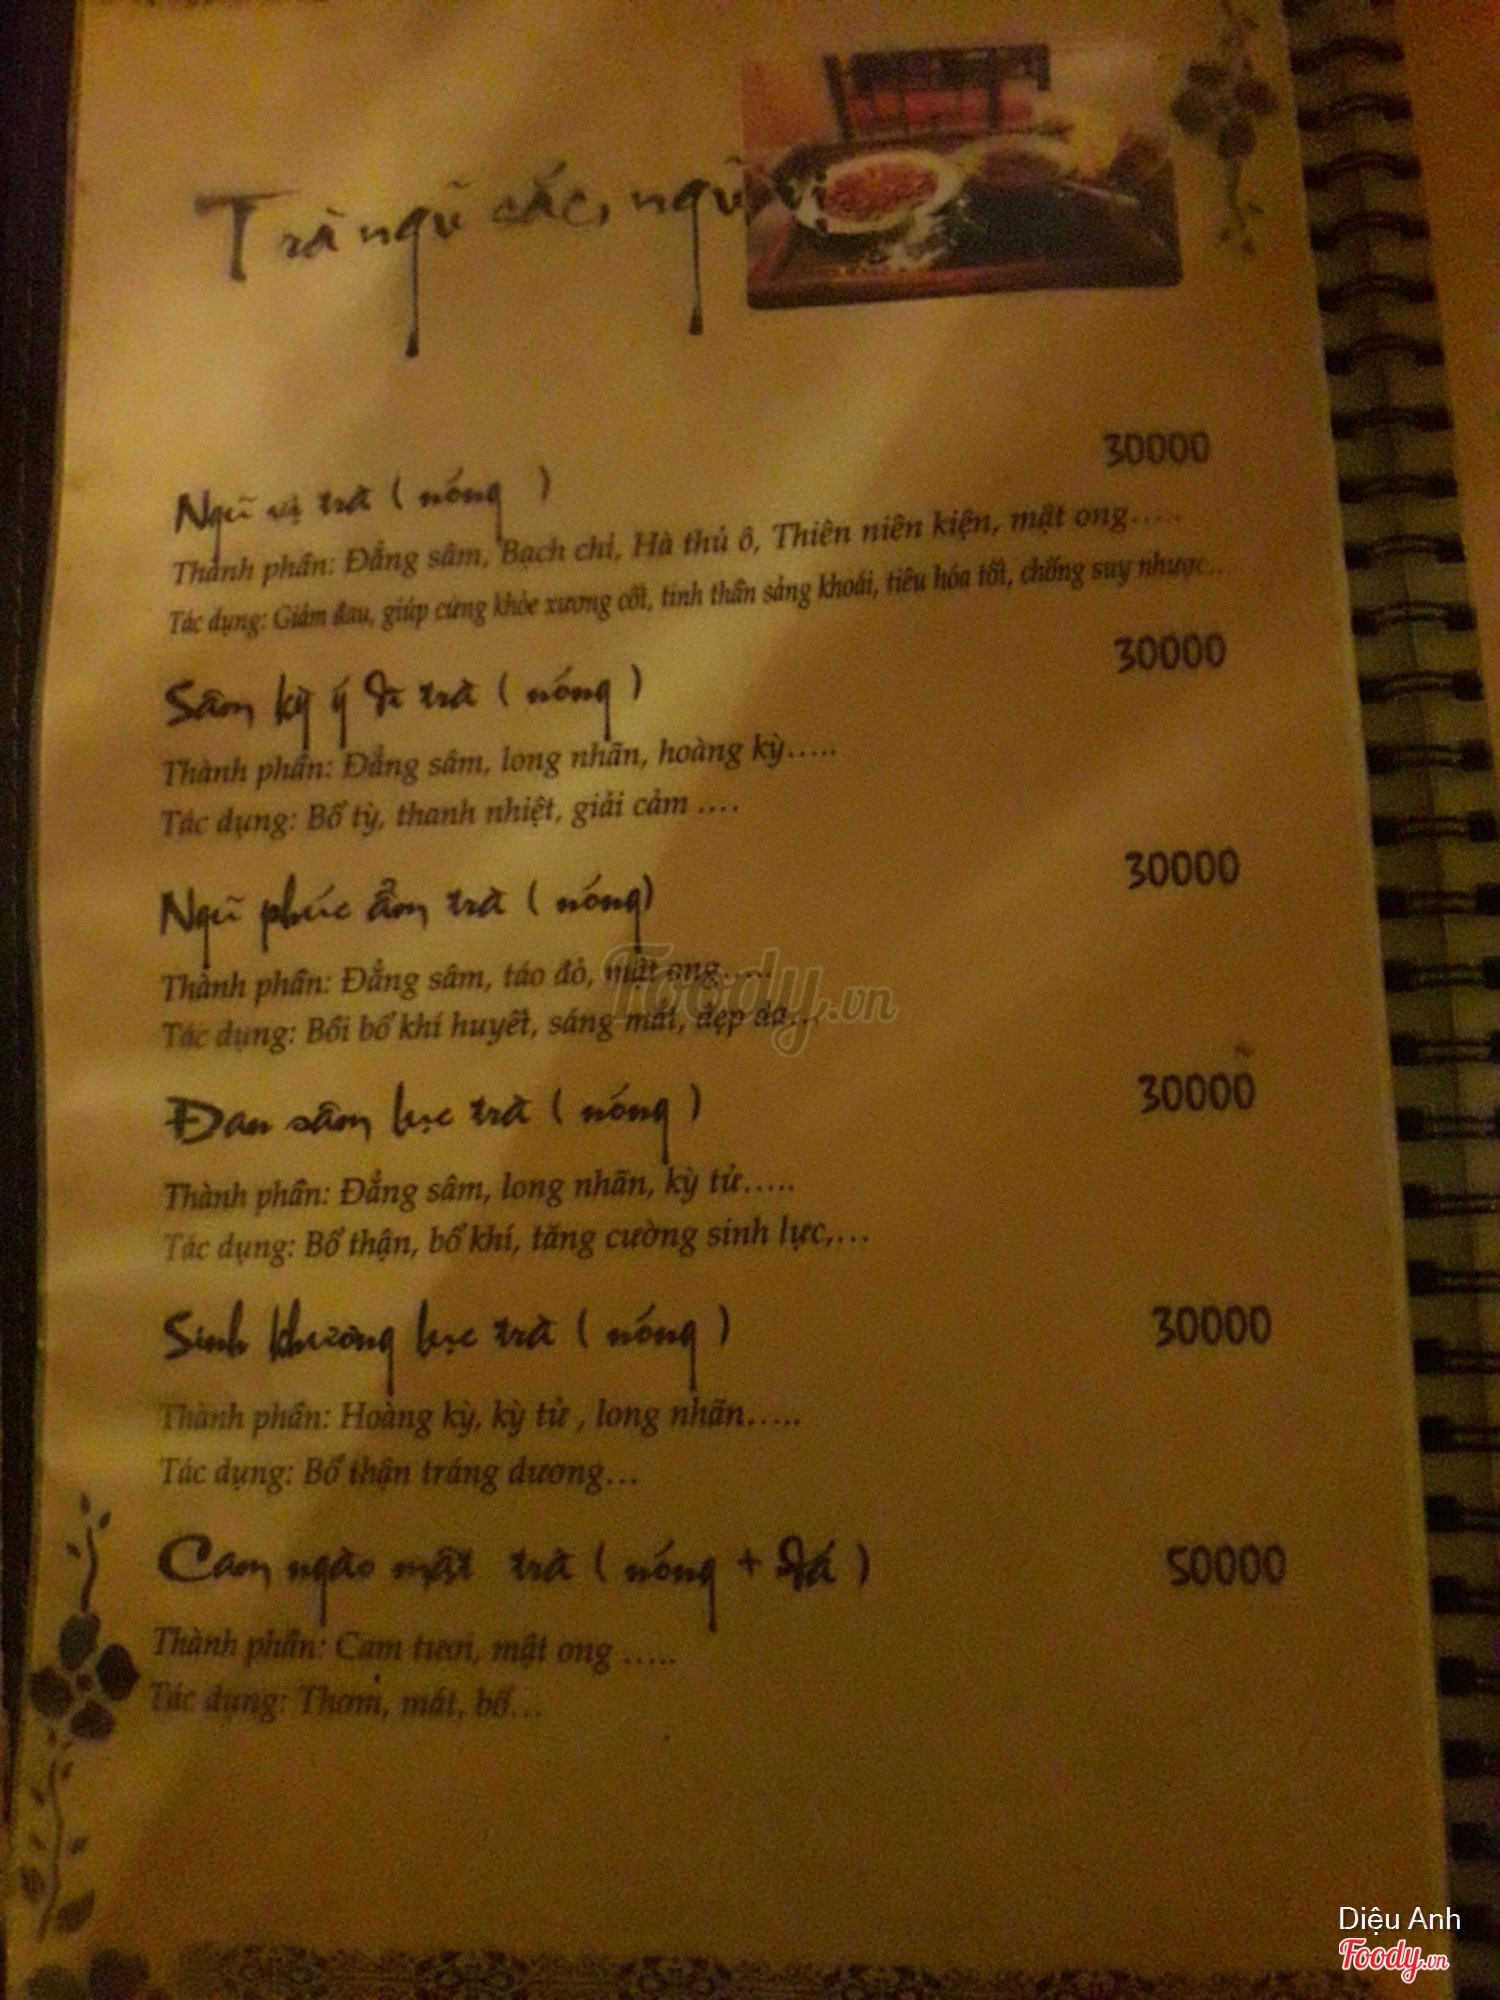 Trà ngũ sắc, ngũ vị
Ngũ vị trà ( nóng ) 30000
Thành phần: Đẳng sâm, Bạch chỉ, Hà thủ ô, Thiên niên kiện, mật ong.....
Tác dụng: Giảm đau, giúp cứng khỏe xương cốt, tinh thần sảng khoái, tiêu hóa tốt, chống suy nhược.....
Sâm kỳ ý dĩ trà ( nóng ) 30000
Thành phần: Đẳng sâm, long nhãn, hoàng kỳ.....
Tác dụng: Bổ tỳ, thanh nhiệt, giải cảm ....
Ngũ phúc ẩm trà ( nóng) 30000
Thành phần: Đẳng sâm, táo đỏ, mật ong.....
Tác dụng: Bồi bổ khí huyết, sáng mắt, đẹp da...
Foody.vn
Đan sâm lục trà ( nóng ) 30000
Thành phần: Đẳng sâm, long nhãn, kỳ tử.....
Tác dụng: Bổ thận, bổ khí, tăng cường sinh lực,...
Sinh khương lục trà ( nóng ) 30000
Thành phần: Hoàng kỳ, kỳ tử , long nhãn.....
Tác dụng: Bổ thận tráng dương...
Cam ngào mật trà ( nóng + đá ) 50000
Thành phần: Cam tươi, mật ong .....
Tác dụng: Thơm, mát, bổ...
Diệu Anh
Foody.vn